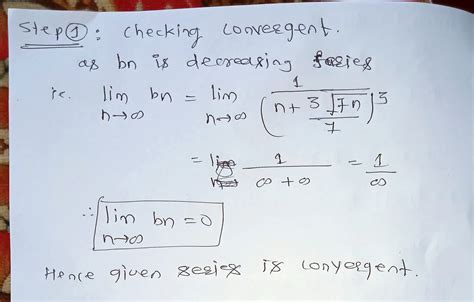 Step ① : Checking Convergent.
as bn is decreasing series
i.e. lim n→∞ bn = lim n→∞ 1 / (n + 3√7n / 7)^3
= 1 / ∞ + ∞ = 1 / ∞
∴ lim n→∞ bn = 0
Hence given series is convergent.